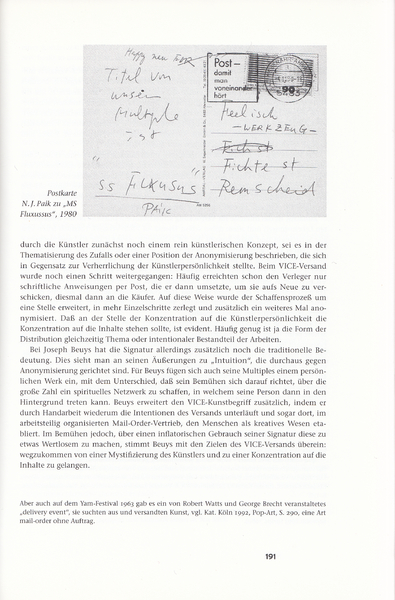 Happy new
Titel von
unser
Multiple
ist
"SS FLUXUSUS"
PAIK
Post–
damit
man
voneinander
hört
90
Feelisch
– WERKZEUG –
Fichte st
Remscheid
Postkarte
N. J. Paik zu „MS
Fluxussus", 1980
durch die Künstler zunächst noch einem rein künstlerischen Konzept, sei es in der
Thematisierung des Zufalls oder einer Position der Anonymisierung beschrieben, die sich
in Gegensatz zur Verherrlichung der Künstlerpersönlichkeit stellte. Beim VICE-Versand
wurde noch einen Schritt weitergegangen: Häufig erreichten schon den Verleger nur
schriftliche Anweisungen per Post, die er dann umsetzte, um sie aufs Neue zu ver-
schicken, diesmal dann an die Käufer. Auf diese Weise wurde der Schaffensprozeß um
eine Stelle erweitert, in mehr Einzelschritte zerlegt und zusätzlich ein weiteres Mal ano-
nymisiert. Daß an der Stelle der Konzentration auf die Künstlerpersönlichkeit die
Konzentration auf die Inhalte stehen sollte, ist evident. Häufig genug ist ja die Form der
Distribution gleichzeitig Thema oder intentionaler Bestandteil der Arbeiten.
Bei Joseph Beuys hat die Signatur allerdings zusätzlich noch die traditionelle Be-
deutung. Dies sieht man an seinen Äußerungen zu „Intuition", die durchaus gegen
Anonymisierung gerichtet sind. Für Beuys fügen sich auch seine Multiples einem persön-
lichen Werk ein, mit dem Unterschied, daß sein Bemühen sich darauf richtet, über die
große Zahl ein spirituelles Netzwerk zu schaffen, in welchem seine Person dann in den
Hintergrund treten kann. Beuys erweitert den VICE-Kunstbegriff zusätzlich, indem er
durch Handarbeit wiederum die Intentionen des Versands unterläuft und sogar dort, im
arbeitsteilig organisierten Mail-Order-Vertrieb, den Menschen als kreatives Wesen eta-
bliert. Im Bemühen jedoch, über einen inflatorischen Gebrauch seiner Signatur diese zu
etwas Wertlosem zu machen, stimmt Beuys mit den Zielen des VICE-Versands überein:
wegzukommen von einer Mystifizierung des Künstlers und zu einer Konzentration auf die
Inhalte zu gelangen.
Aber auch auf dem Yam-Festival 1963 gab es ein von Robert Watts und George Brecht veranstaltetes
„delivery event", sie suchten aus und versandten Kunst, vgl. Kat. Köln 1992, Pop-Art, S. 290, eine Art
mail-order ohne Auftrag.
191